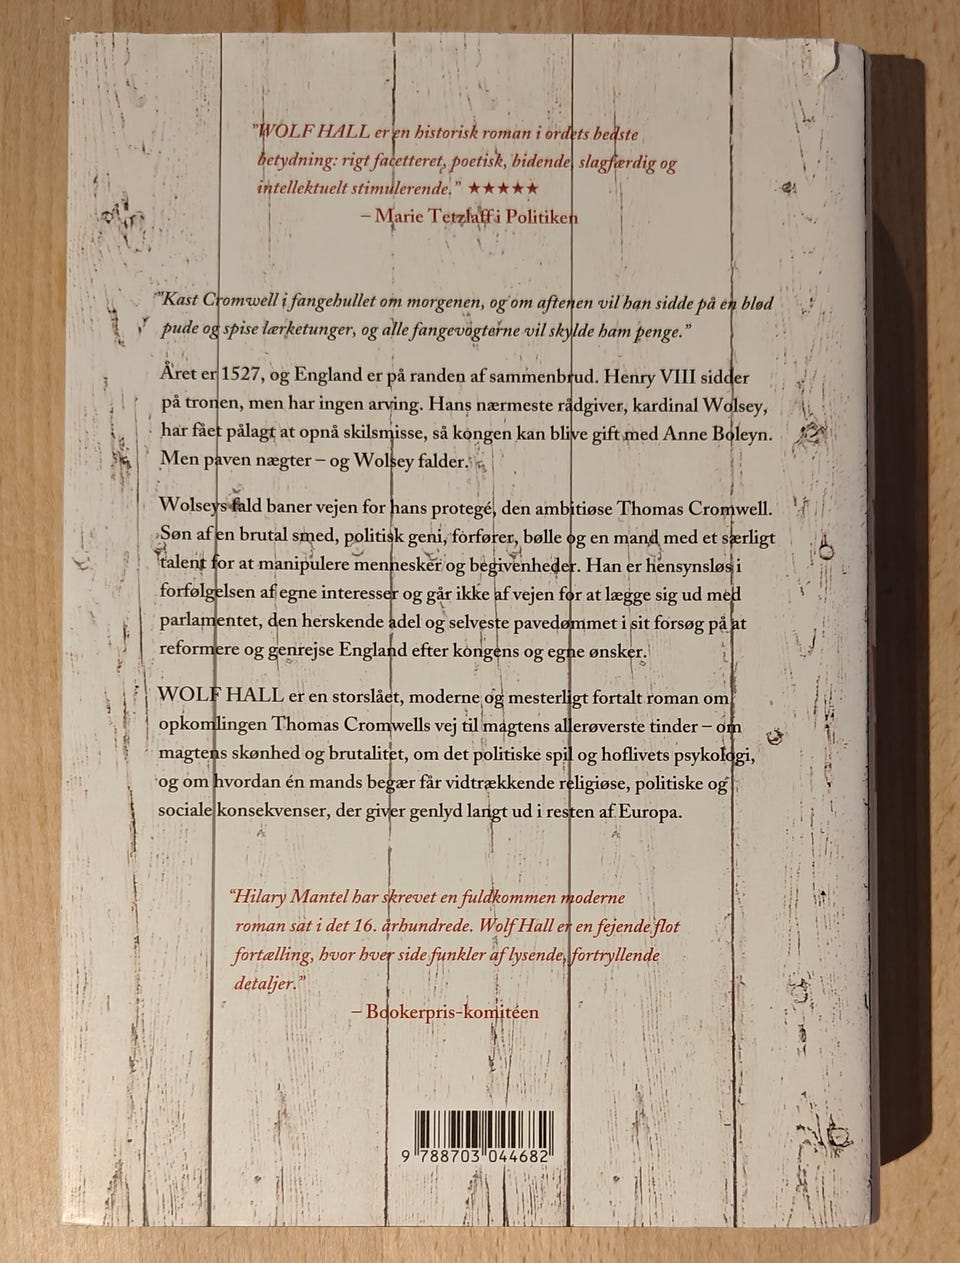 "WOLF HALL er en historisk roman i ordets bedste
betydning: rigt facetteret, poetisk, bidende, slagfærdig og
intellektuelt stimulerende." ★★★★★
– Marie Tetzlaff i Politiken
"Kast Cromwell i fangehullet om morgenen, og om aftenen vil han sidde på en blød
pude og spise lærketunger, og alle fangevogterne vil skylde ham penge."
Året er 1527, og England er på randen af sammenbrud. Henry VIII sidder
på tronen, men har ingen arving. Hans nærmeste rådgiver, kardinal Wolsey,
har fået pålagt at opnå skilsmisse, så kongen kan blive gift med Anne Boleyn.
Men paven nægter – og Wolsey falder.
Wolseys fald baner vejen for hans protegé, den ambitiøse Thomas Cromwell.
Søn af en brutal smed, politisk geni, forfører, bølle og en mand med et særligt
talent for at manipulere mennesker og begivenheder. Han er hensynsløs i
forfølgelsen af egne interesser og går ikke af vejen for at lægge sig ud med
parlamentet, den herskende adel og selveste pavedømmet i sit forsøg på at
reformere og genrejse England efter kongens og egne ønsker.
WOLF HALL er en storslået, moderne og mesterligt fortalt roman om
opkomlingen Thomas Cromwells vej til magtens allerøverste tinder – om
magtens skønhed og brutalitet, om det politiske spil og hoflivets psykologi,
og om hvordan én mands begær får vidtrækkende religiøse, politiske og
sociale konsekvenser, der giver genlyd langt ud i resten af Europa.
"Hilary Mantel har skrevet en fuldkommen moderne
roman sat i det 16. århundrede. Wolf Hall er en fejende flot
fortælling, hvor hver side funkler af lysende, fortryllende
detaljer."
– Bookerpris-komitéen
9 788703 044682